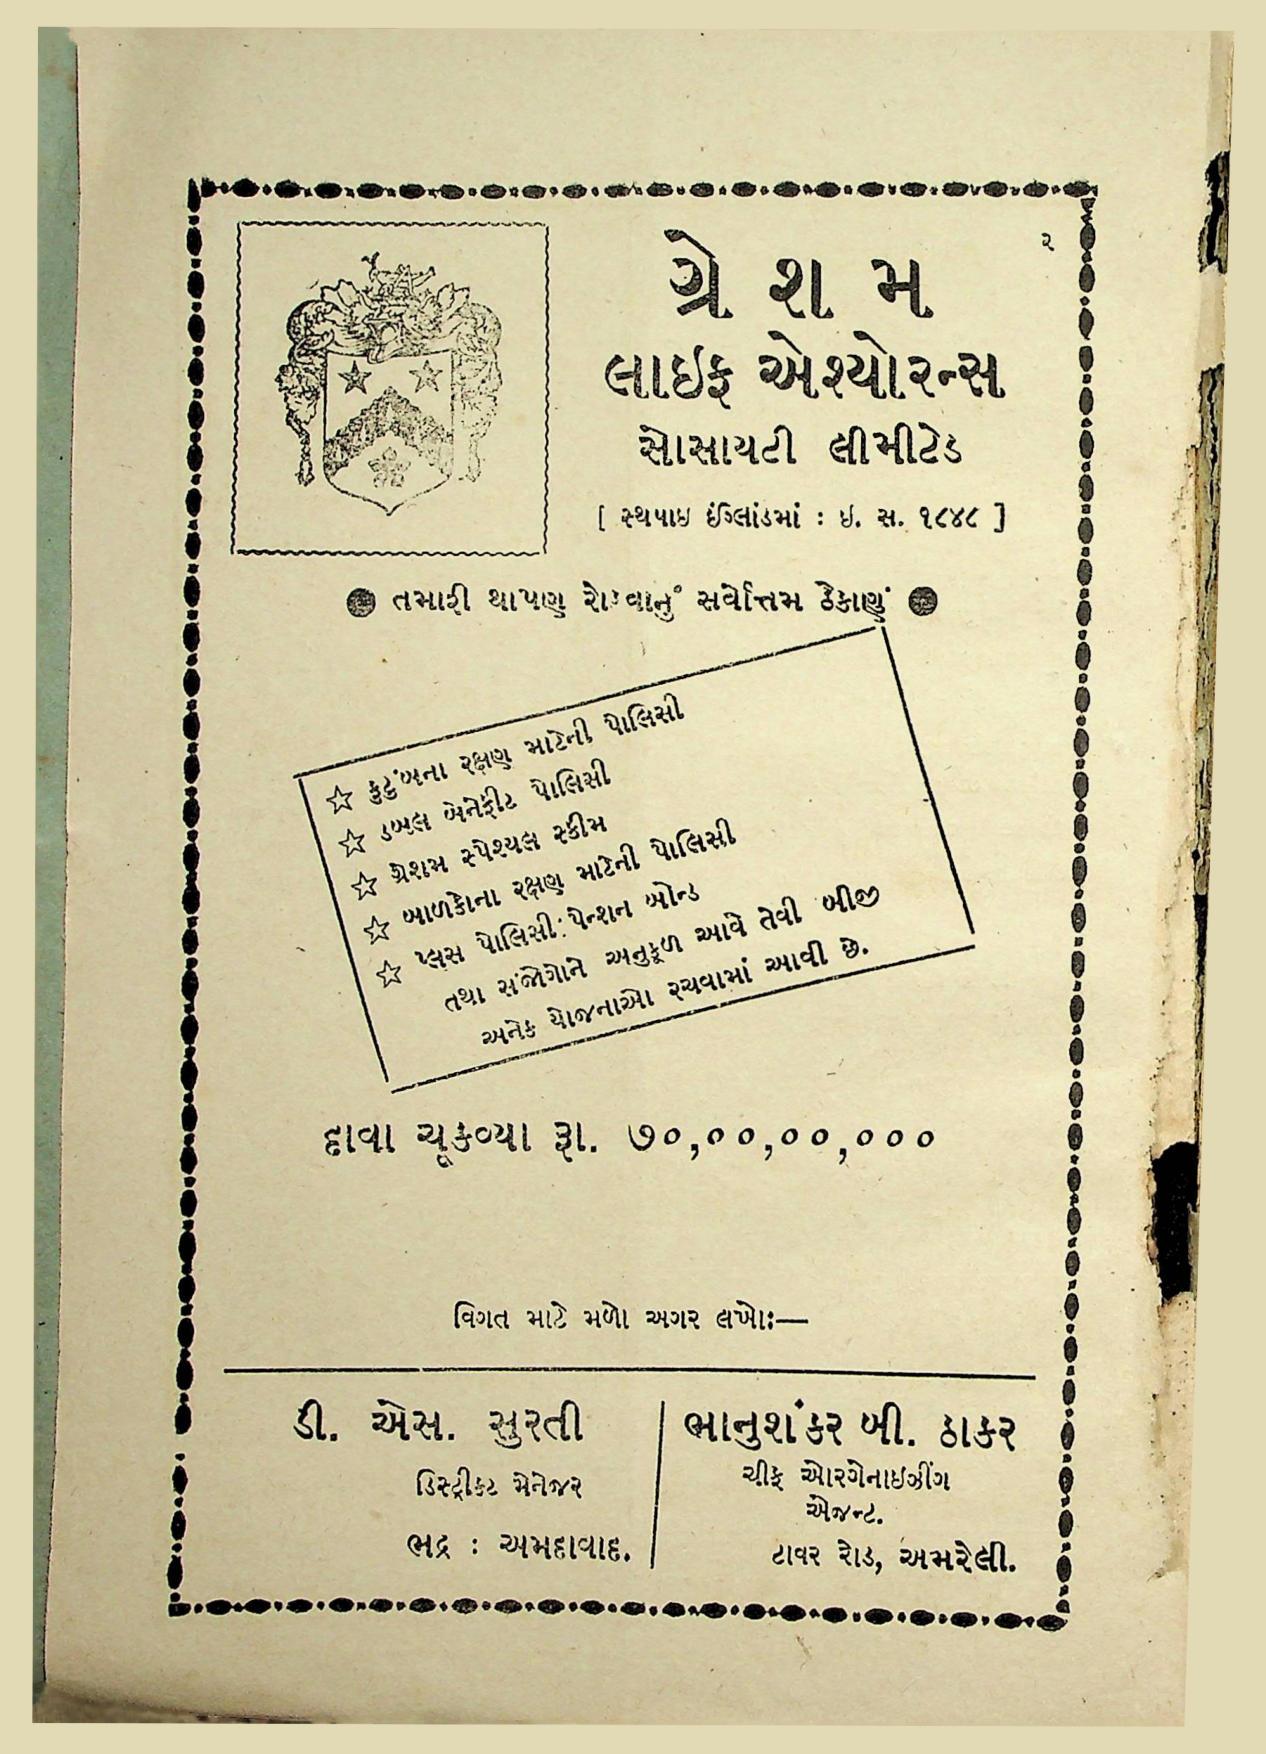 ૨
ગ્રેશમ
લાઇફ એશ્યોરન્સ
સોસાયટી લીમીટેડ
[ સ્થપાઇ ઇંગ્લાંડમાં : ઇ. સ. ૧૮૪૮ ]
તમારી થાપણ રોકવાનું સર્વોત્તમ ઠેકાણું
☆ કુટુંબના રક્ષણ માટેની પોલિસી
☆ ડબલ બેનેફીટ પોલિસી
☆ ગ્રેશમ સ્પેશ્યલ સ્કીમ
☆ બાળકોના રક્ષણ માટેની પોલિસી
☆ પ્લસ પોલિસી : પેન્શન બોન્ડ
તથા સંજોગોને અનુકૂળ આવે તેવી બીજી
અનેક યોજનાઓ રચવામાં આવી છે.
દાવા ચૂકવ્યા રૂા. ૭૦,૦૦,૦૦,૦૦૦
વિગત માટે મળો અગર લખો:—
ડી. એસ. સુરતી
ડિસ્ટ્રીકટ મેનેજર
ભદ્ર : અમદાવાદ.
ભાનુશંકર બી. ઠાકર
ચીફ ઓરગેનાઇઝીંગ
એજન્ટ.
ટાવર રોડ, અમરેલી.